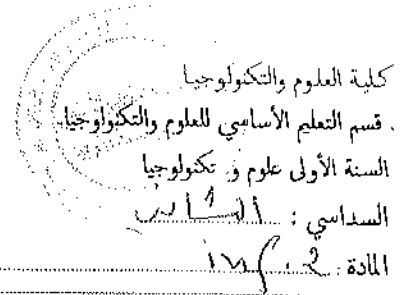 كلية العلوم والتكنولوجيا
قسم التعليم الأساسي للعلوم والتكنولوجيا
السنة الأولى علوم و تكنولوجيا
السداسي :
المادة :